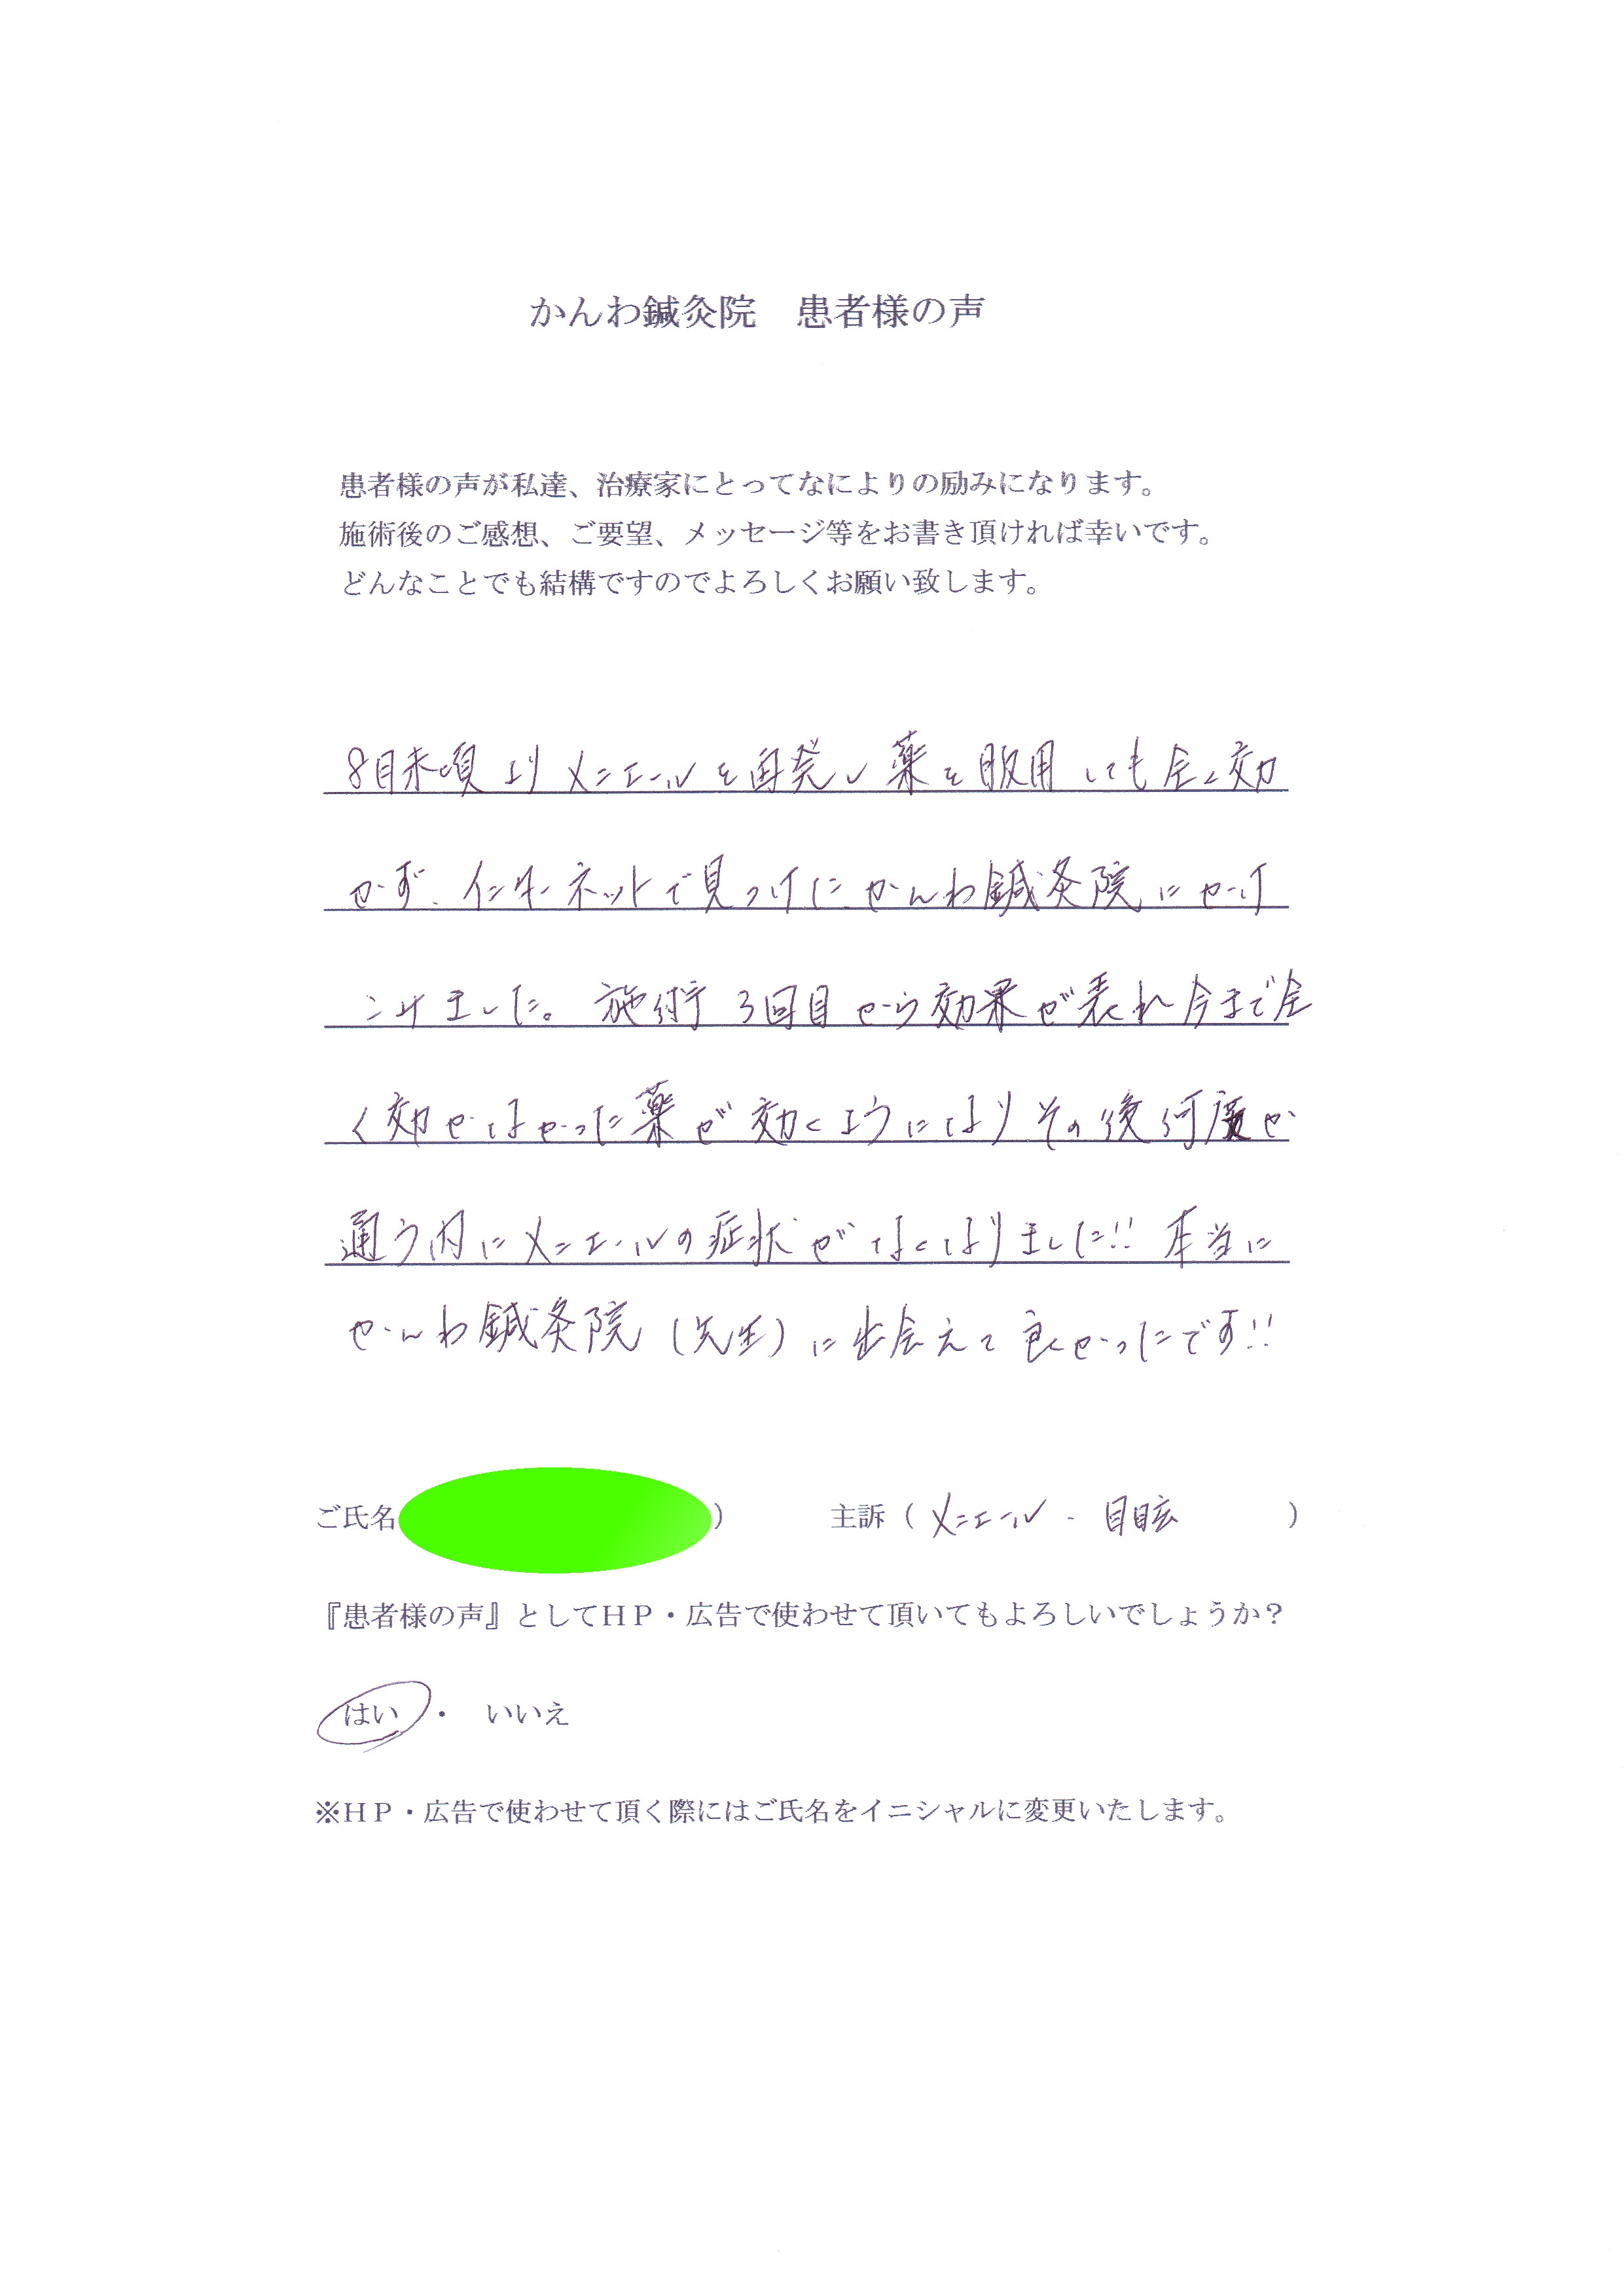 かんわ鍼灸院　患者様の声
患者様の声が私達、治療家にとってなによりの励みになります。
施術後のご感想、ご要望、メッセージ等をお書き頂ければ幸いです。
どんなことでも結構ですのでよろしくお願い致します。
8月末頃よりメニエールを再発し薬を服用しても全く効
かず、インターネットで見つけたかんわ鍼灸院にかけ
こみました。施術3回目から効果が表れ今まで全
く効かなかった薬が効くようになりその後何度か
通う内にメニエールの症状がなくなりました!! 本当に
かんわ鍼灸院(先生)に出会えて良かったです!!
ご氏名　　　　）　主訴（メニエール・目眩　）
『患者様の声』としてＨＰ・広告で使わせて頂いてもよろしいでしょうか？
はい・　いいえ
※ＨＰ・広告で使わせて頂く際にはご氏名をイニシャルに変更いたします。